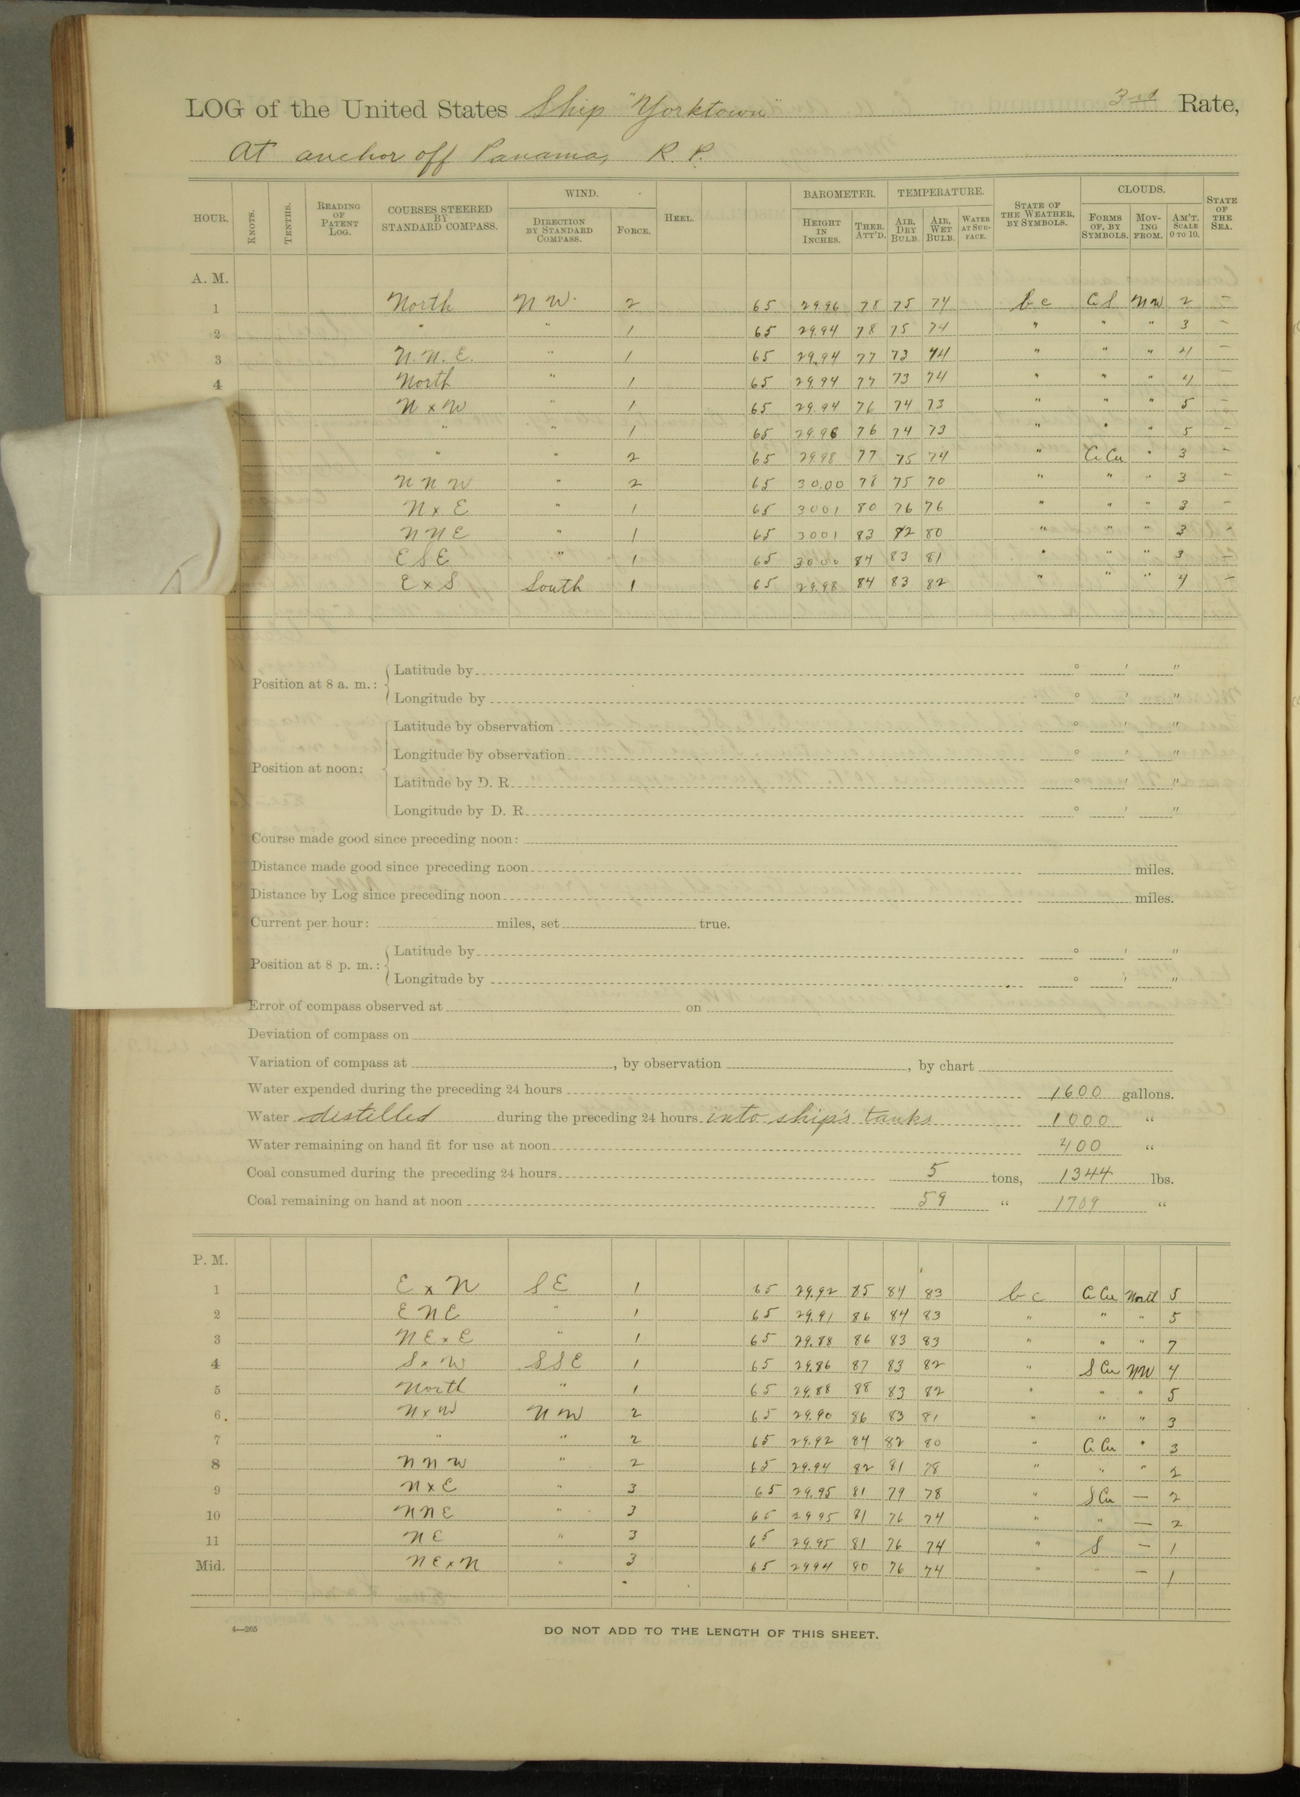 LOG of the United States Ship "Yorktown" 3rd Rate,
At anchor off Panama, R. P.
HOUR. KNOTS. TENTHS. READING OF PATENT LOG. COURSES STEERED BY STANDARD COMPASS. WIND. DIRECTION BY STANDARD COMPASS. FORCE. HEEL. BAROMETER. HEIGHT IN INCHES. THER. ATT'D. TEMPERATURE. AIR, DRY BULB. AIR, WET BULB. WATER AT SURFACE. STATE OF THE WEATHER, BY SYMBOLS. CLOUDS. FORMS OF, BY SYMBOLS. MOVING FROM. AM'T. SCALE 0 TO 10. STATE OF THE SEA.
A. M.
1 North N W. 2 65 29.96 78 75 74 b c C S N W 2 —
2 " " 1 65 29.94 78 75 74 " " " 3 —
3 N. N. E. " 1 65 29.94 77 73 74 " " " 4 —
4 North " 1 65 29.94 77 73 74 " " " 4 —
N x W " 1 65 29.94 76 74 73 " " " 5 —
" " 1 65 29.96 76 74 73 " " " 5 —
" " 2 65 29.98 77 75 74 " C Cu " 3 —
N N W " 2 65 30.00 78 75 70 " " " 3 —
N x E " 1 65 3001 80 76 76 " " " 3 —
N N E " 1 65 3001 83 82 80 " " " 3 —
E S E " 1 65 30.00 84 83 81 " " " 3 —
E x S South 1 65 29.98 84 83 82 " " " 4 —
Position at 8 a. m.: Latitude by ° ' "
Longitude by ° ' "
Position at noon: Latitude by observation ° ' "
Longitude by observation ° ' "
Latitude by D. R. ° ' "
Longitude by D. R. ° ' "
Course made good since preceding noon:
Distance made good since preceding noon miles.
Distance by Log since preceding noon miles.
Current per hour: miles, set true.
Position at 8 p. m.: Latitude by ° ' "
Longitude by ° ' "
Error of compass observed at on
Deviation of compass on
Variation of compass at , by observation , by chart
Water expended during the preceding 24 hours 1600 gallons.
Water distilled during the preceding 24 hours into ship's tanks 1000 "
Water remaining on hand fit for use at noon 400 "
Coal consumed during the preceding 24 hours 5 tons, 1344 lbs.
Coal remaining on hand at noon 59 " 1709 "
P. M.
1 E x N S E 1 65 29.92 85 84 83 b c C Cu North 5
2 E N E " 1 65 29.91 86 84 83 " " " 5
3 N E x E " 1 65 29.88 86 83 83 " " " 7
4 S x W S S E 1 65 29.86 87 83 82 " S Cu N W 4
5 North " 1 65 29.88 88 83 82 " " " 5
6. N x W N W 2 65 29.90 86 83 81 " " " 3
7 " " 2 65 29.92 84 82 80 " C Cu " 3
8 N N W " 2 65 29.94 82 81 78 " " " 2
9 N x E " 3 65 29.95 81 79 78 " S Cu — 2
10 N N E " 3 65 29 95 81 76 74 " " — 2
11 N E " 3 65 29.95 81 76 74 " S — 1
Mid. N E x N " 3 65 2994 80 76 74 " " — 1
4—265
DO NOT ADD TO THE LENGTH OF THIS SHEET.